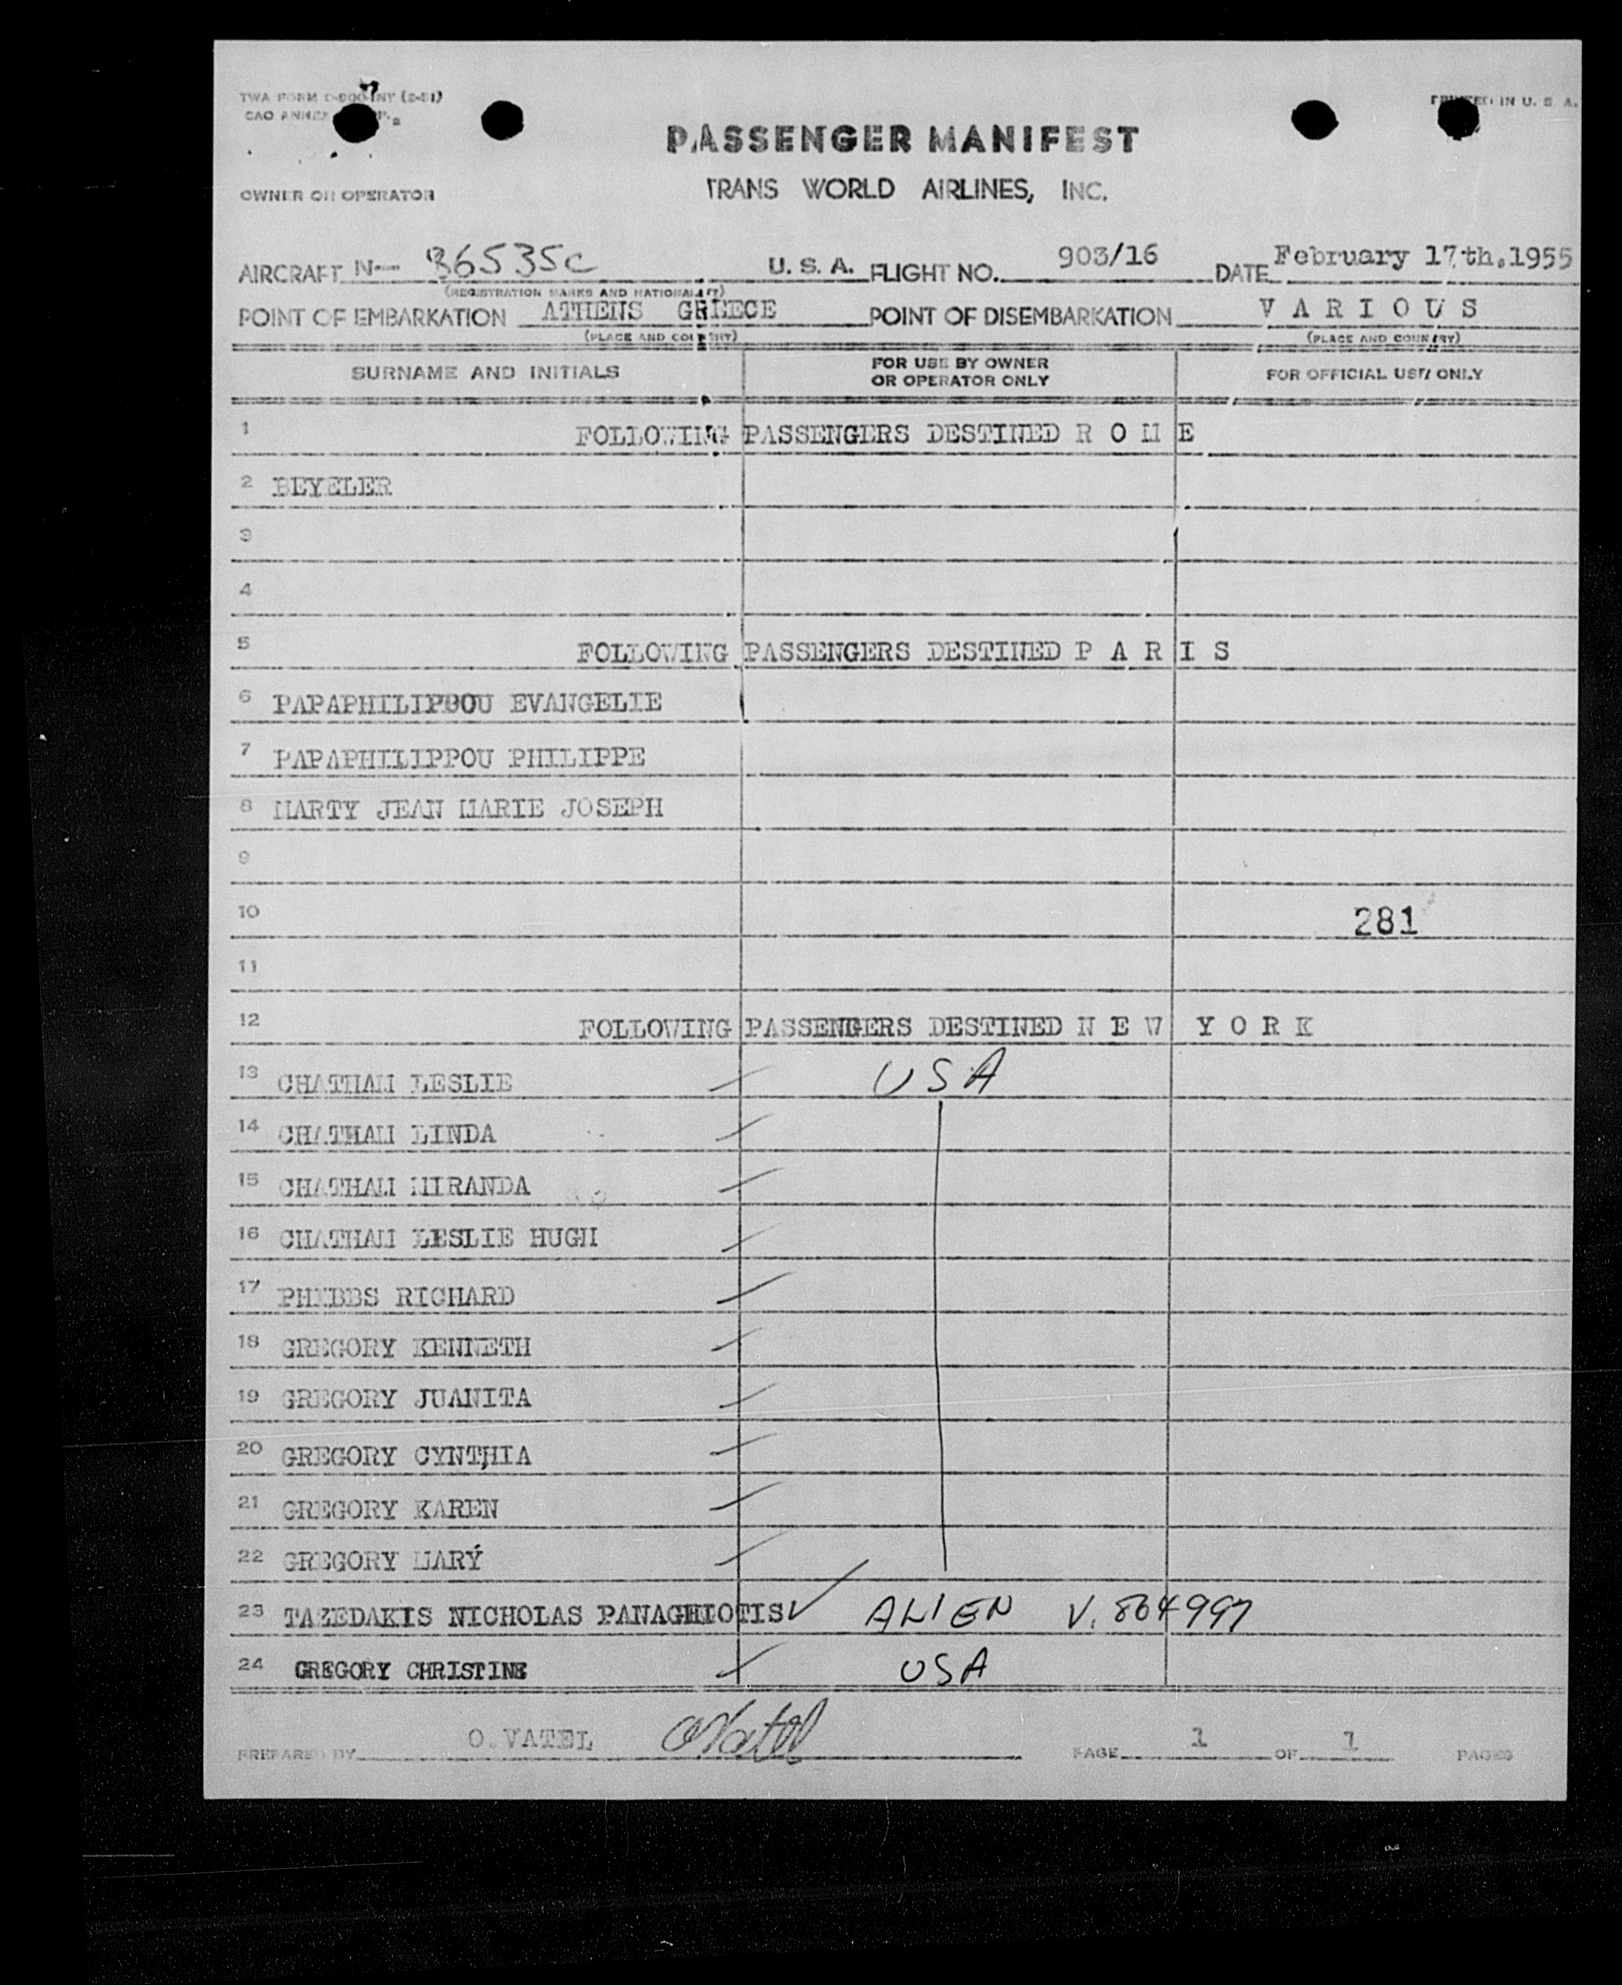 TWA FORM
PRINTED IN U. S. A.
CAO ANNEX
PASSENGER MANIFEST
OWNER OR OPERATOR
TRANS WORLD AIRLINES, INC.
AIRCRAFT N-- 86535C U. S. A. FLIGHT NO. 903/16 DATE February 17th.1955
(REGISTRATION MARKS AND NATIONALITY)
POINT OF EMBARKATION ATHENS GREECE POINT OF DISEMBARKATION V A R I O U S
(PLACE AND COUNTRY) (PLACE AND COUNTRY)
SURNAME AND INITIALS FOR USE BY OWNER OR OPERATOR ONLY FOR OFFICIAL USE ONLY
1 FOLLOWING PASSENGERS DESTINED R O M E
2 BEYELER
3
4
5 FOLLOWING PASSENGERS DESTINED P A R I S
6 PAPAPHILIPPOU EVANGELIE
7 PAPAPHILIPPOU PHILIPPE
8 MARTY JEAN MARIE JOSEPH
9
10 281
11
12 FOLLOWING PASSENGERS DESTINED N E W Y O R K
13 CHATHAM LESLIE USA
14 CHATHAM LINDA
15 CHATHAM MIRANDA
16 CHATHAM LESLIE HUGH
17 PHIBBS RICHARD
18 GREGORY KENNETH
19 GREGORY JUANITA
20 GREGORY CYNTHIA
21 GREGORY KAREN
22 GREGORY MARY
23 TAZEDAKIS NICHOLAS PANAGHIOTIS ALIEN V. 864997
24 GREGORY CHRISTINE USA
PREPARED BY O.VATEL OVatel PAGE 1 OF 1 PAGES